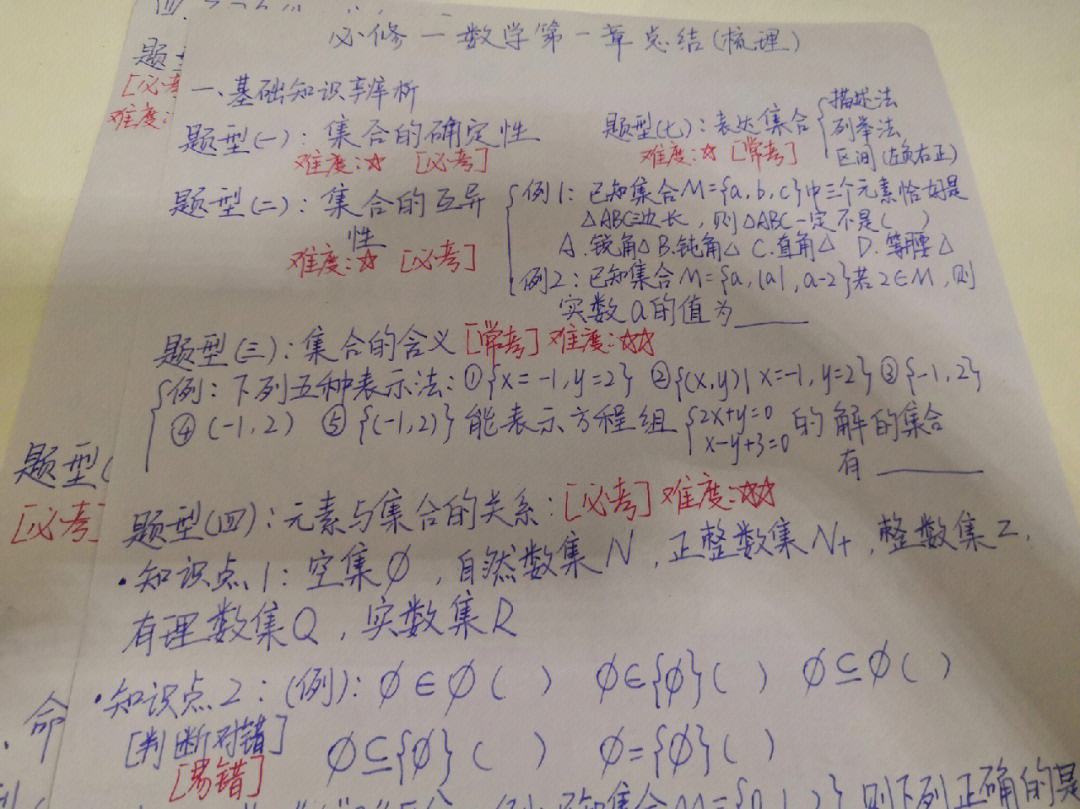 必修一数学第一章总结(梳理)
一、基础知识辨析
题型(一)：集合的确定性
难度：☆ [必考]
题型(七)：表达集合{描述法
列举法
区间(左负右正)
难度：☆ [常考]
题型(二)：集合的互异
性
难度：☆ [必考]
例1：已知集合M={a,b,c}中三个元素恰好是
△ABC三边长，则△ABC一定不是( )
A.锐角△ B.钝角△ C.直角△ D.等腰△
例2：已知集合M={a,|a|,a-2}若2∈M,则
实数a的值为____
题型(三)：集合的含义[常考] 难度：☆☆
例：下列五种表示法：①{x=-1,y=2} ②{(x,y)|x=-1,y=2} ③{-1,2}
④(-1,2) ⑤{(-1,2)}能表示方程组{2x+y=0
x-y+3=0 的解的集合
有____
题型(四)：元素与集合的关系：[必考] 难度：☆☆
·知识点1：空集∅，自然数集N，正整数集N+，整数集Z，
有理数集Q，实数集R
·知识点2：(例)：∅∈∅( ) ∅∈{∅}( ) ∅⊆∅( )
[判断对错]
∅⊆{∅}( ) ∅={∅}( )
[易错]
则下列正确的是
题
[必考
难度：
题型(
[必考]
命